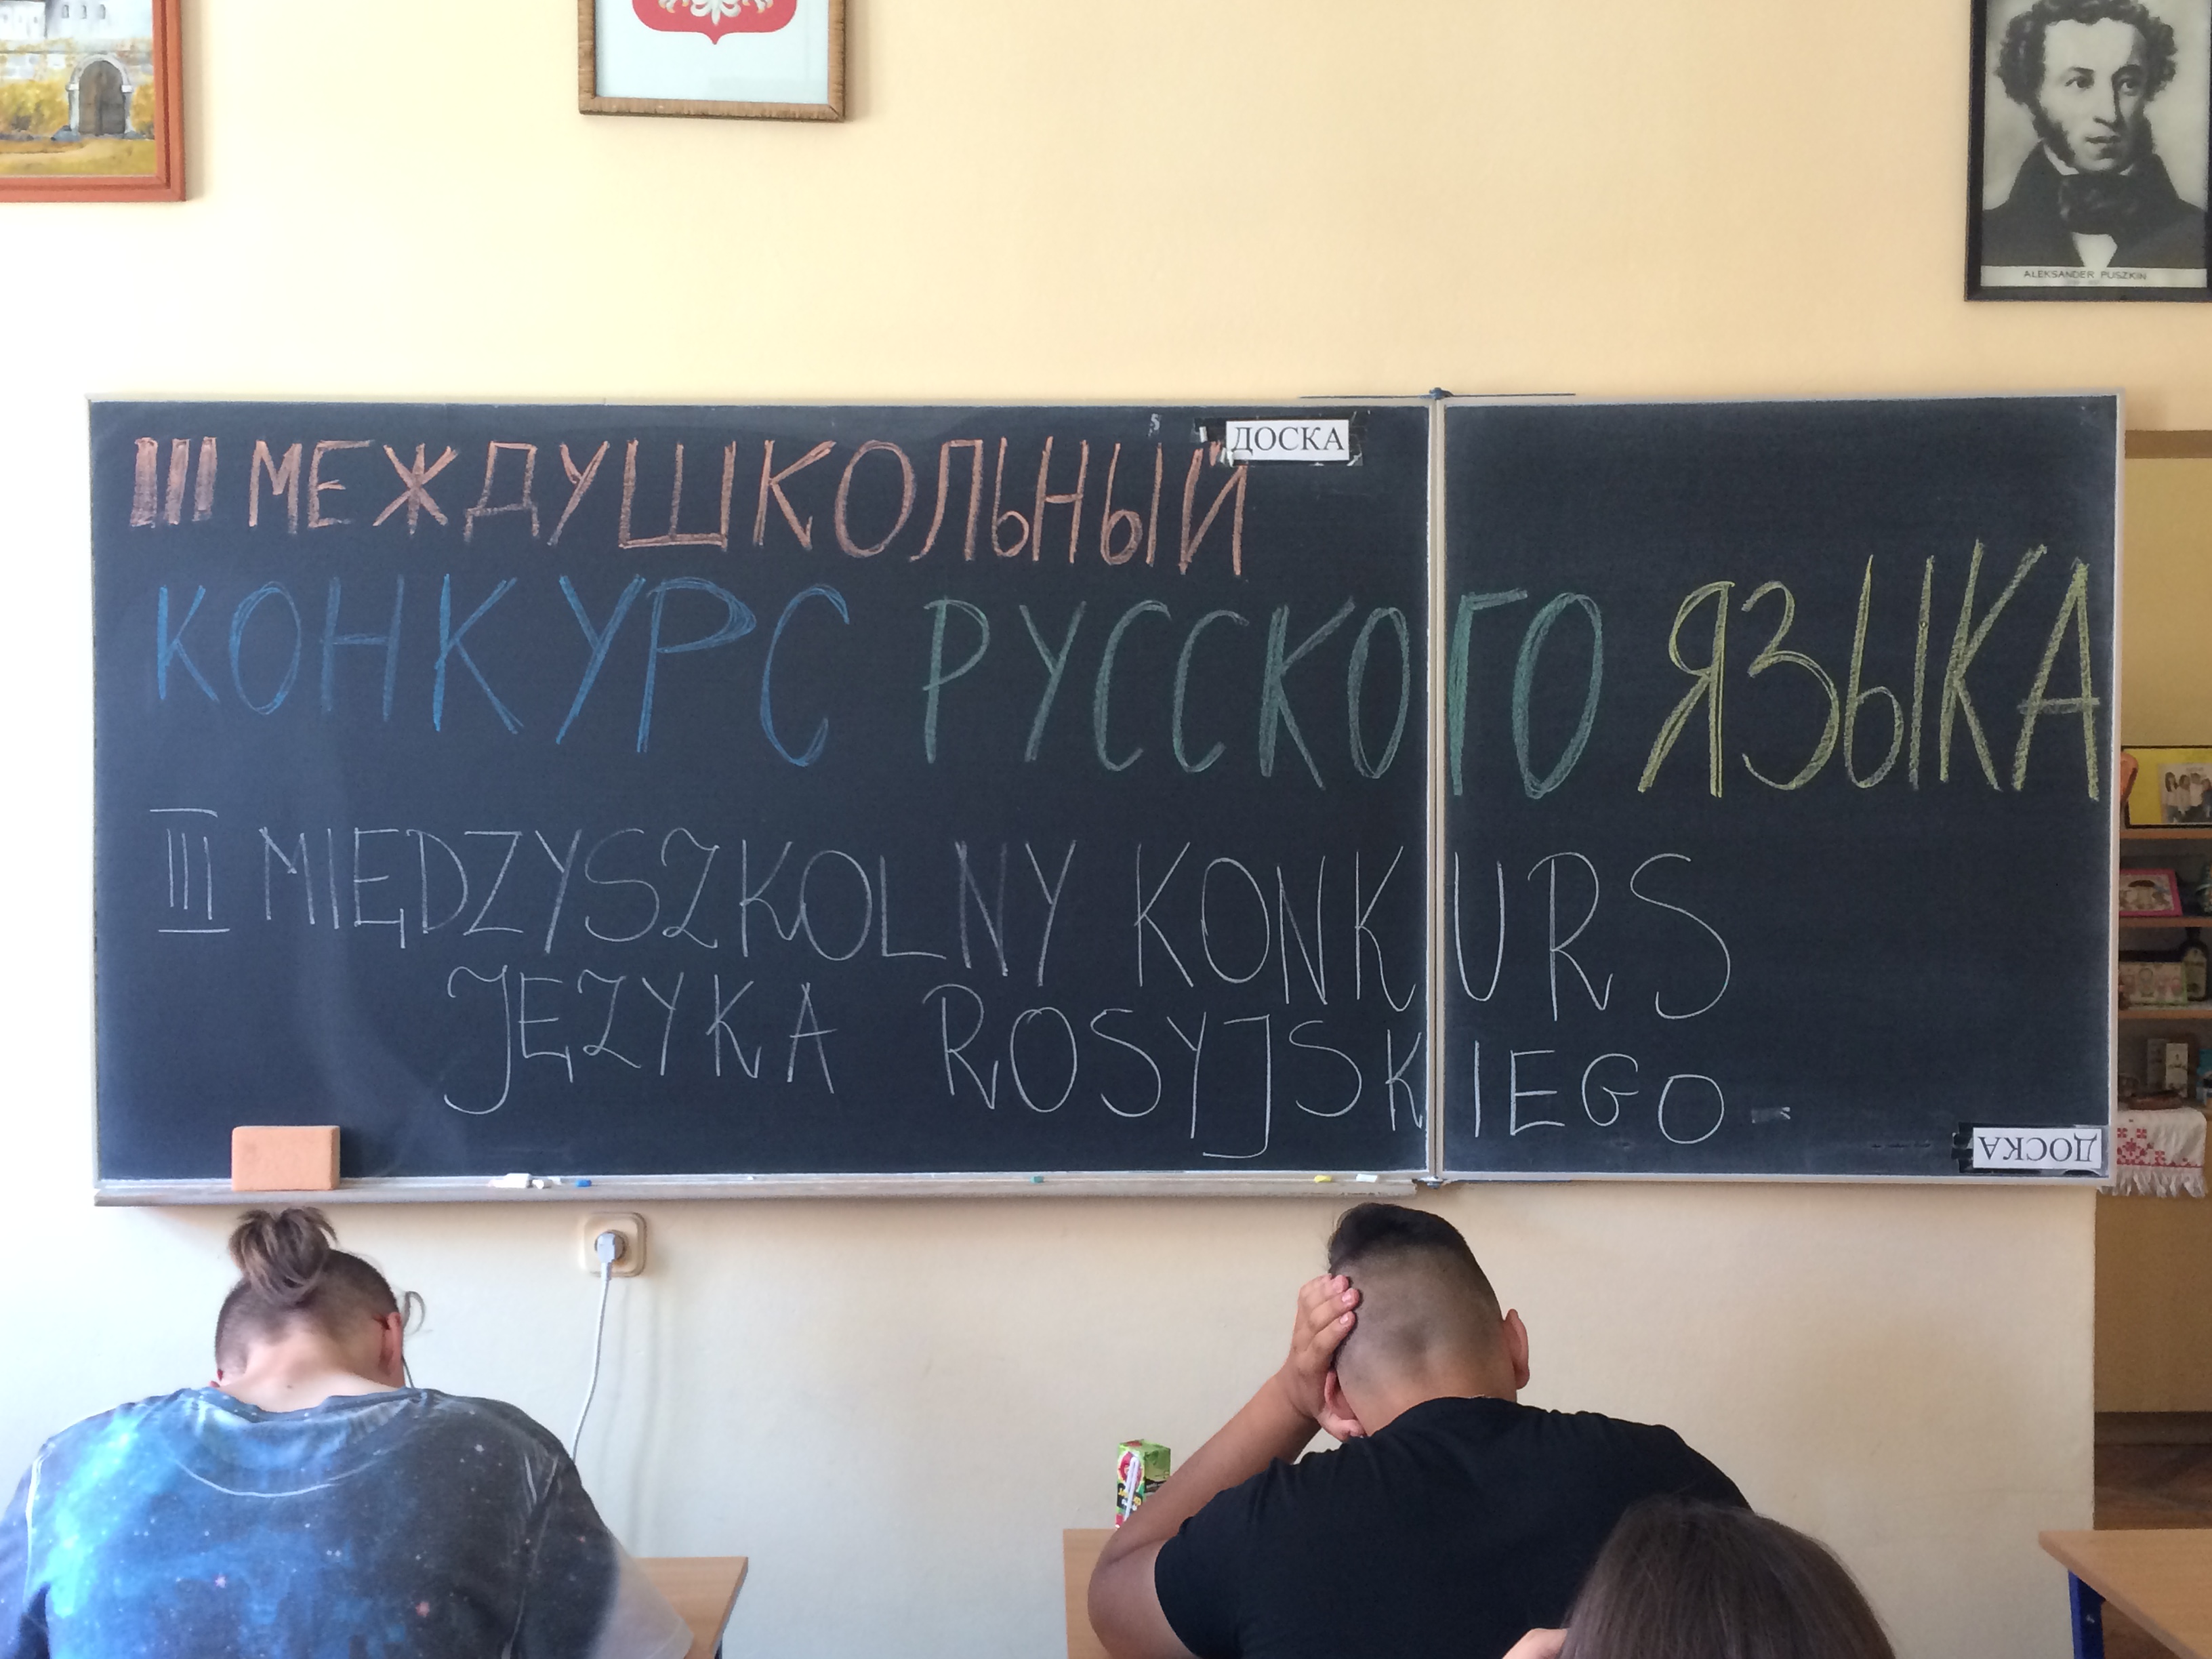 ALEKSANDER PUSZKIN
ДОСКА
III МЕЖДУШКОЛЬНЫЙ
КОНКУРС РУССКОГО ЯЗЫКА
III MIĘDZYSZKOLNY KONKURS
JĘZYKA ROSYJSKIEGO
ДОСКА